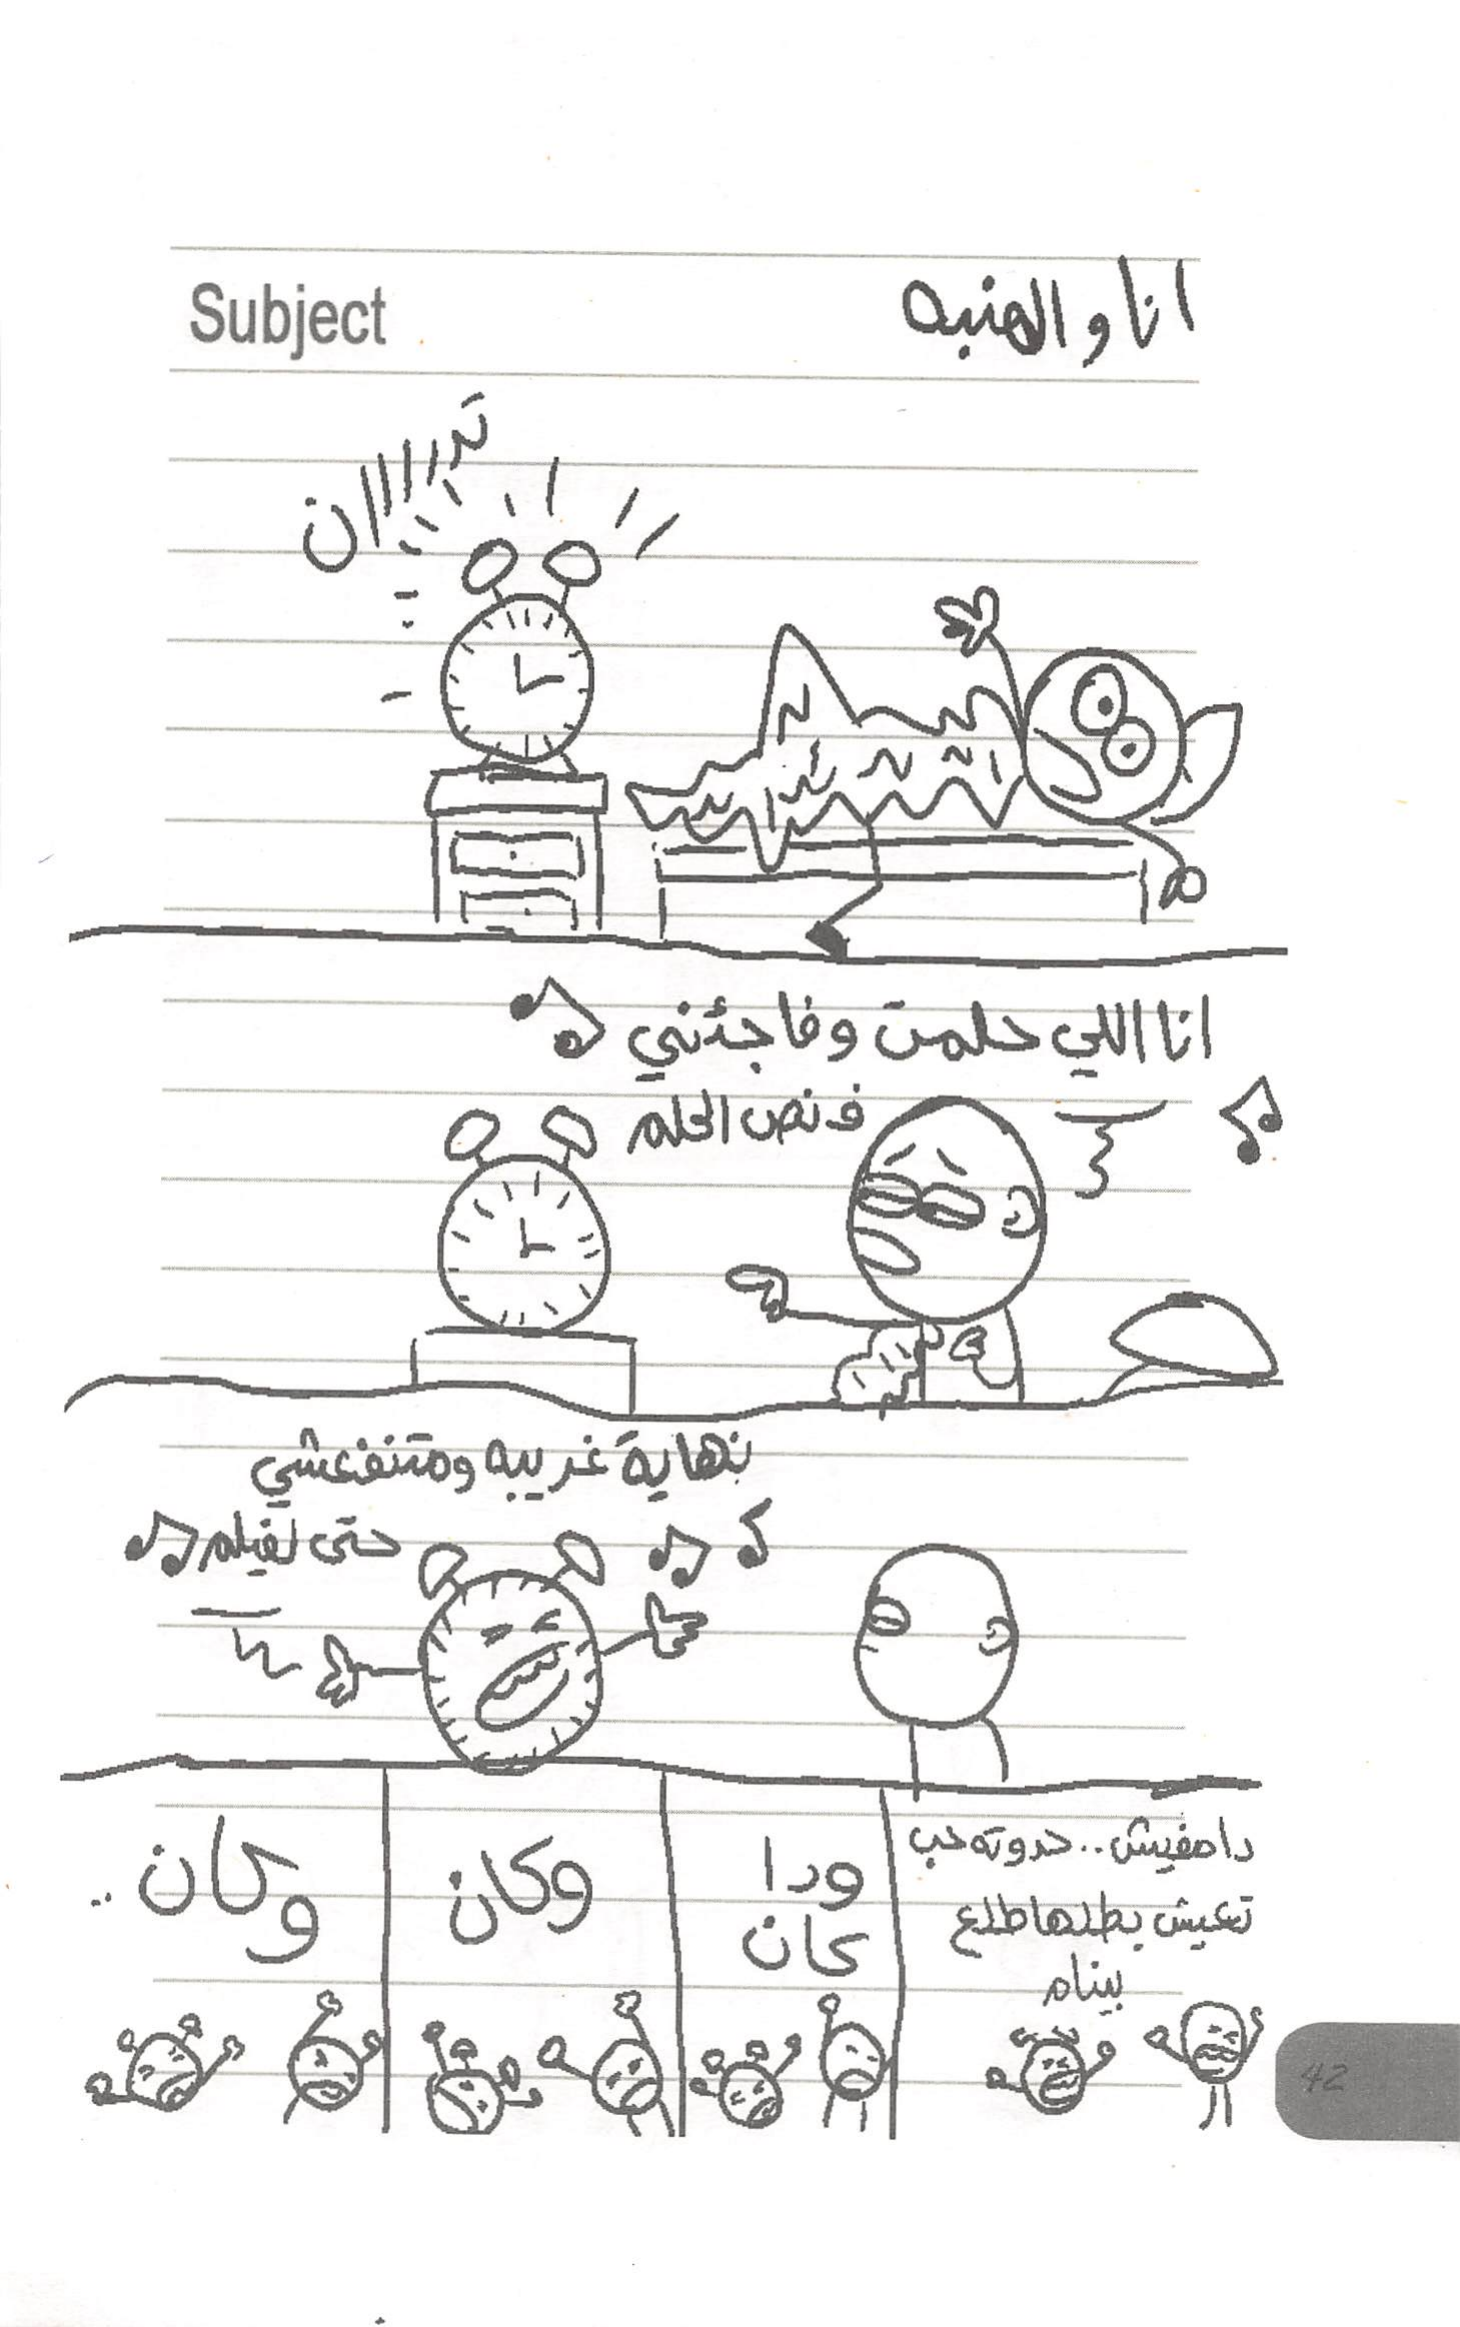 Subject
انا والمنبه
تراااااان
انا اللي حلمت وفاجئتني
ف نص الحلم
نهاية غريبه ومتنفعشي
حتى لفيلم
دا مفيش.. حدوته حب
تعيش بطلها طلع
بينام
ودا
كان
وكان
وكان..
42